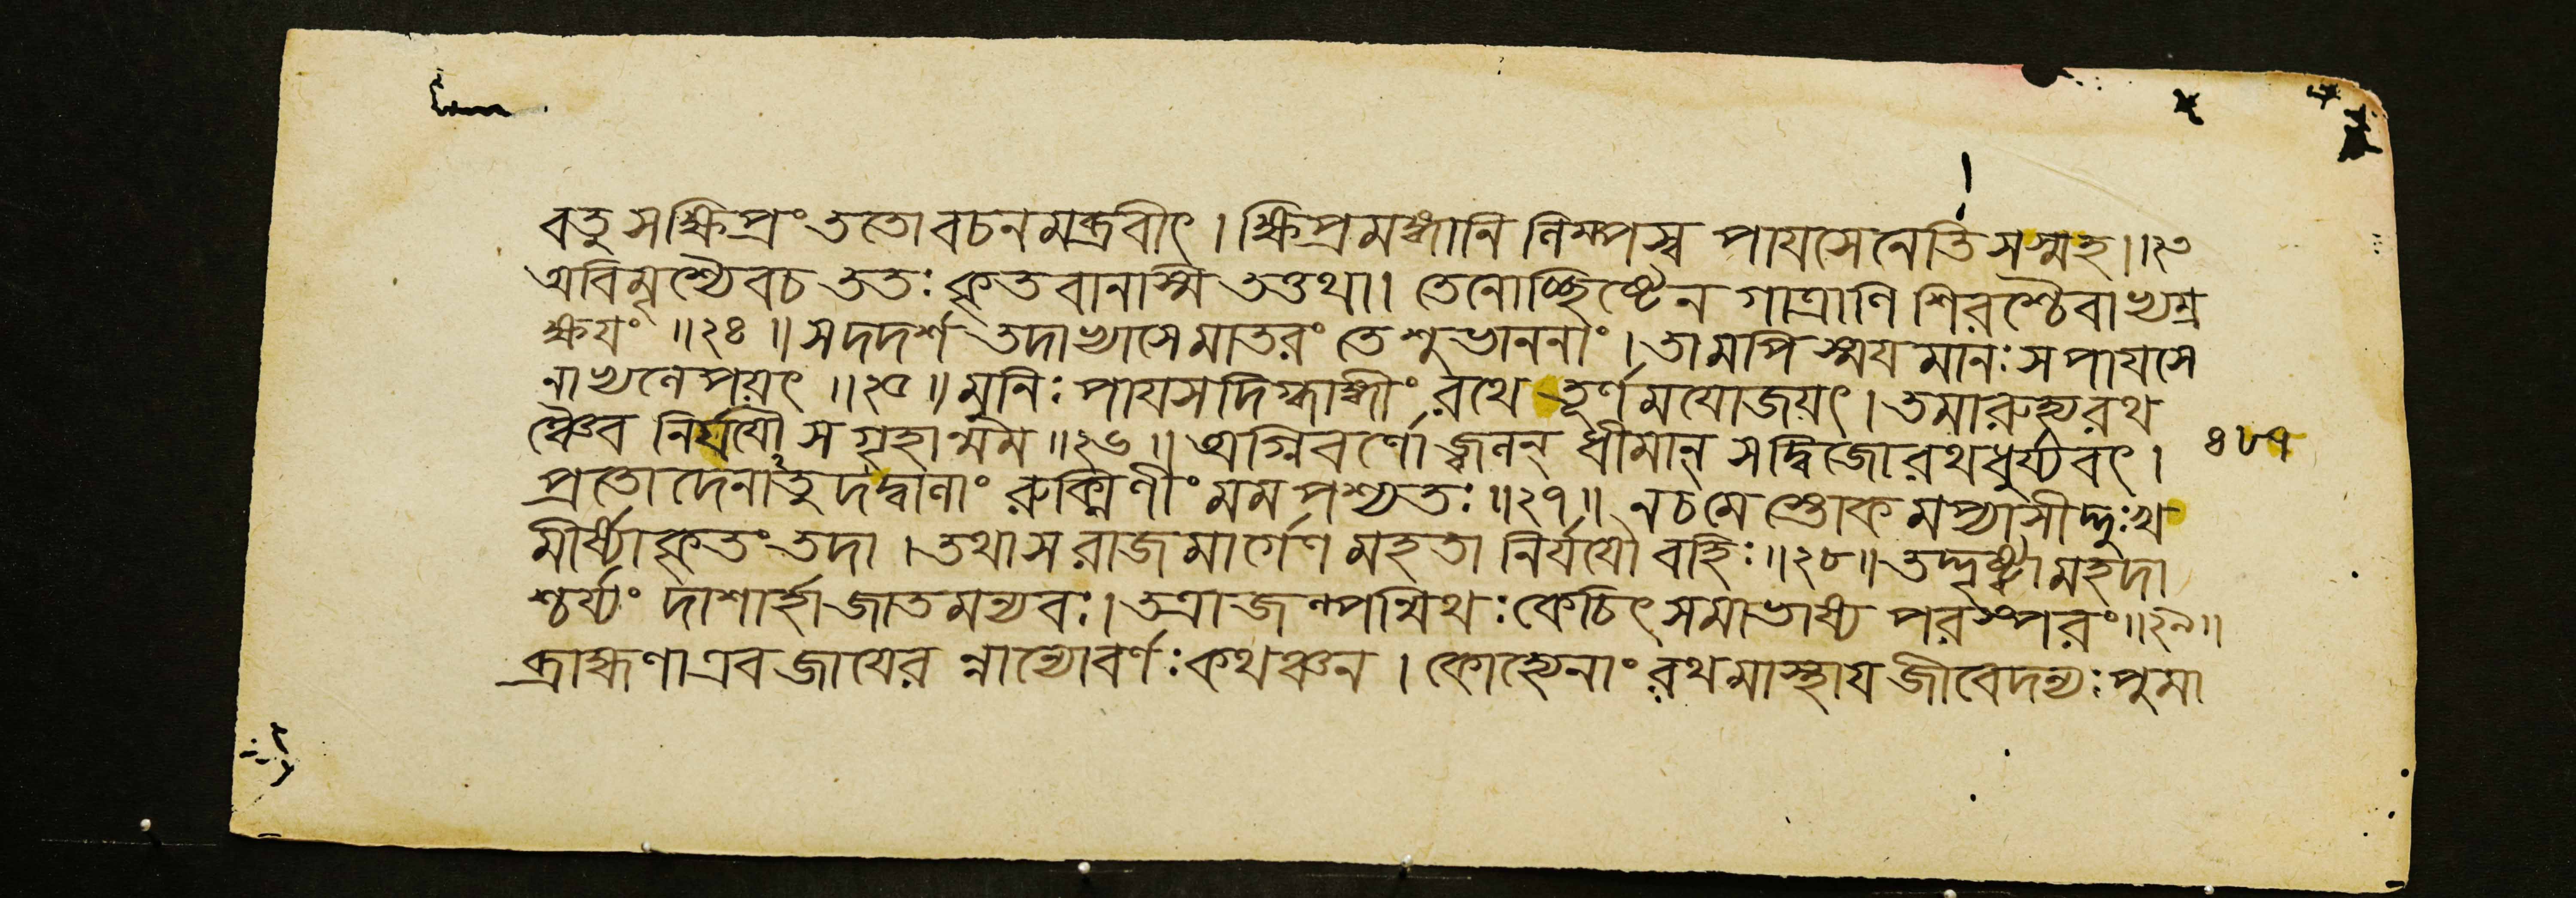 বতু সক্ষিপ্রং ততো বচনমব্রবীৎ । ক্ষিপ্রমঙ্গানি লিম্পস্ব পায়সেনেতি সস্মহ ॥২৩
অবিমৃশ্যৈবচ ততঃ কৃতবানাস্মি তত্তথা । তেনোচ্ছিষ্টেন গাত্রাণি শিরশ্চৈবাভ্যম্র
ক্ষয়ং ॥২৪॥ সদদর্শ তদাভ্যাসে মাতরং তে শুভাননাং । তামপি স্ময়মানঃ স পায়সে
নাভ্যলেপয়ৎ ॥২৫॥ মুনিঃ পায়সদিগ্ধাঙ্গীং রথে তূর্ণমযোজয়ৎ । তমারুহ্য রথ
ঞ্চৈব নির্যযৌ স গৃহান্মম ॥২৬॥ অগ্নিবর্ণো জ্বলন্ ধীমান্ সদ্বিজো রথধুর্য্যবৎ ।
প্রতোদেনাতুদদ্বালাং রুক্মিণীং মম পশ্যতঃ ॥২৭॥ নচমে স্তোকমপ্যাসীদ্দুঃখ
মীর্ষ্যাকৃতং তদা । তথা স রাজমার্গেণ মহতা নির্যযৌ বহিঃ ॥২৮॥ তদ্দৃষ্ট্বা মহদা
শ্চর্য্যং দাশার্হা জাতমন্যবঃ । তত্রাজল্পন্মিথঃ কেচিৎ সমাভাষ্য পরস্পরং ॥২৯॥
ব্রাহ্মণা এব জায়ের ন্নান্যোবর্ণঃ কথঞ্চন । কোহ্যেনাং রথমাস্থায় জীবেদন্যঃ পুমা
৪৮৭